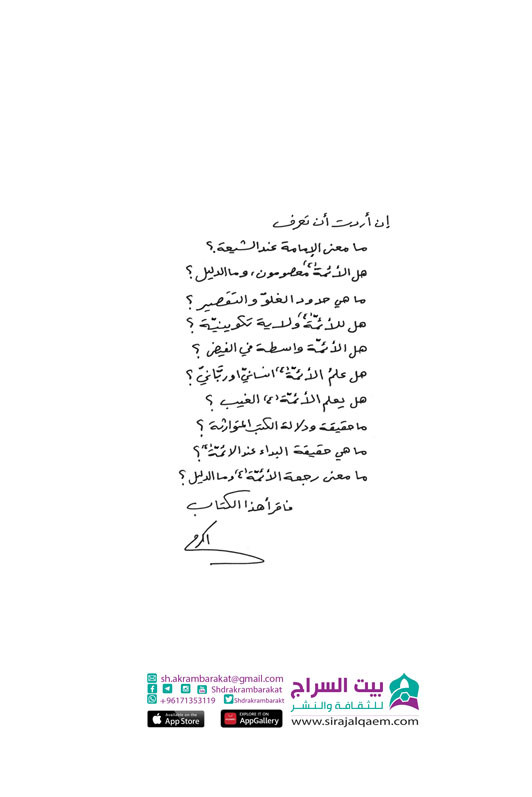 إن أردت أن تعرف
ما معنى الإمامة عند الشيعة؟
هل الأئمّة(ع) معصومون، وما الدليل؟
ما هي حدود الغلوّ والتقصير؟
هل للأئمّة(ع) ولاية تكوينيّة؟
هل الأئمّة واسطة في الفيض؟
هل علمُ الأئمّة(ع) انسانيّ او ربّانيّ؟
هل يعلم الأئمّة(ع) الغيب؟
ما حقيقة ودلالة الكتب المتوارثة؟
ما هي حقيقة البداء عند الائمّة(ع)؟
ما معنى رجعة الأئمّة(ع) وما الدليل؟
فاقرأ هذا الكتاب
اكرم
sh.akrambarakat@gmail.com
Shdrakrambarakat
+96171353119 Shdrakrambarakt
Available on the App Store
EXPLORE IT ON AppGallery
بيت السراج
للثقافة والنشر
www.sirajalqaem.com